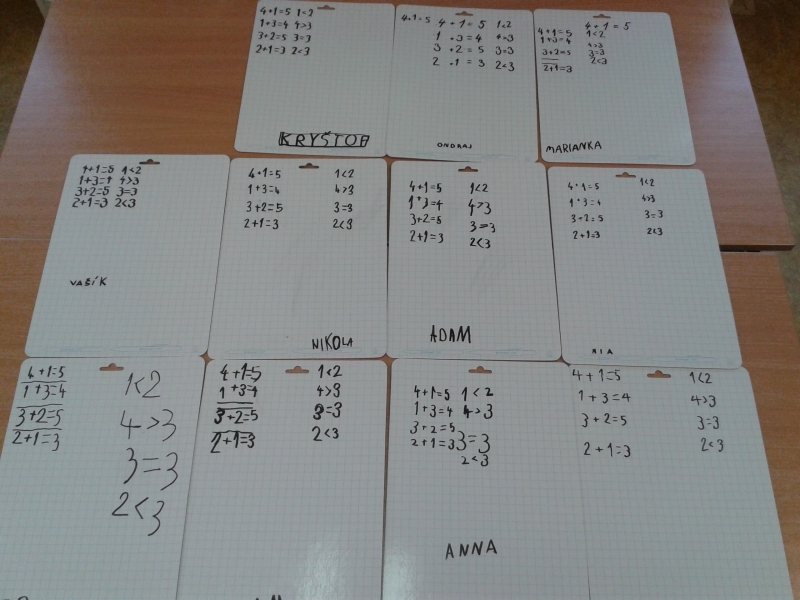 4+1=5 1<2
1+3=4 4>3
3+2=5 3=3
2+1=3 2<3
KRYŠTOF
4+1=5 4+1=5 1<2
1+3=4 4>3
3+2=5 3=3
2+1=3 2<3
ONDRAJ
4+1=5
4+1=5 1<2
1+3=4 4>3
3+2=5 3=3
2+1=3 2<3
MARIANKA
4+1=5 1<2
1+3=4 4>3
3+2=5 3=3
2+1=3 2<3
VAŠÍK
4+1=5 1<2
1+3=4 4>3
3+2=5 3=3
2+1=3 2<3
NIKOLA
4+1=5 1<2
1+3=4 4>3
3+2=5 3=3
2+1=3 2<3
ADAM
4+1=5 1<2
1+3=4 4>3
3+2=5 3=3
2+1=3 2<3
4+1=5 1<2
1+3=4 4>3
3+2=5 3=3
2+1=3 2<3
4+1=5 1<2
1+3=4 4>3
3+2=5 3=3
2+1=3 2<3
4+1=5 1<2
1+3=4 4>3
3+2=5 3=3
2+1=3 2<3
ANNA
4+1=5 1<2
1+3=4 4>3
3+2=5 3=3
2+1=3 2<3